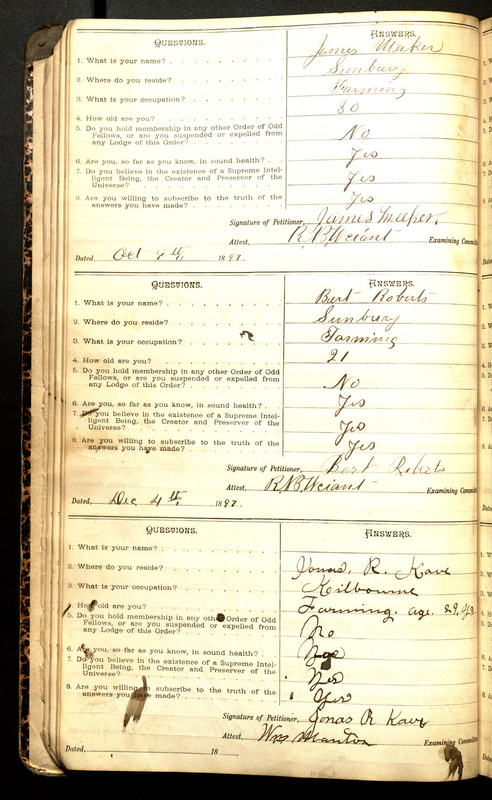 QUESTIONS. ANSWERS.
1. What is your name? James Meeker
2. Where do you reside? Sunbury
3. What is your occupation? Farming
4. How old are you? 30
5. Do you hold membership in any other Order of Odd
Fellows, or are you suspended or expelled from
any Lodge of this Order? No
6. Are you, so far as you know, in sound health? Yes
7. Do you believe in the existence of a Supreme Intel-
ligent Being, the Creator and Preserver of the
Universe? Yes
8. Are you willing to subscribe to the truth of the
answers you have made? Yes
Signature of Petitioner, James Meeker.
Attest, R. B. Weiant Examining Committ
Dated, Oct 9th, 1897.
QUESTIONS. ANSWERS.
1. What is your name? Burt Roberts
2. Where do you reside? Sunbury
3. What is your occupation? Farming
4. How old are you? 21
5. Do you hold membership in any other Order of Odd
Fellows, or are you suspended or expelled from
any Lodge of this Order? No
6. Are you, so far as you know, in sound health? Yes
7. Do you believe in the existence of a Supreme Intel-
ligent Being, the Creator and Preserver of the
Universe? Yes
8. Are you willing to subscribe to the truth of the
answers you have made? Yes
Signature of Petitioner, Bert Roberts
Attest, R. B. Weiant Examining Commit
Dated, Dec 4th, 1897.
QUESTIONS. ANSWERS.
1. What is your name?
2. Where do you reside? Jonas. R. Kave
3. What is your occupation? Kilbourne
4. How old are you? Farming. age. 29. yrs
5. Do you hold membership in any other Order of Odd
Fellows, or are you suspended or expelled from
any Lodge of this Order? No
6. Are you, so far as you know, in sound health? Yes
7. Do you believe in the existence of a Supreme Intel-
ligent Being, the Creator and Preserver of the
Universe? Yes
8. Are you willing to subscribe to the truth of the
answers you have made? Yes
Signature of Petitioner, Jonas R Kave
Attest, Wm Examining Committ
Dated, 18